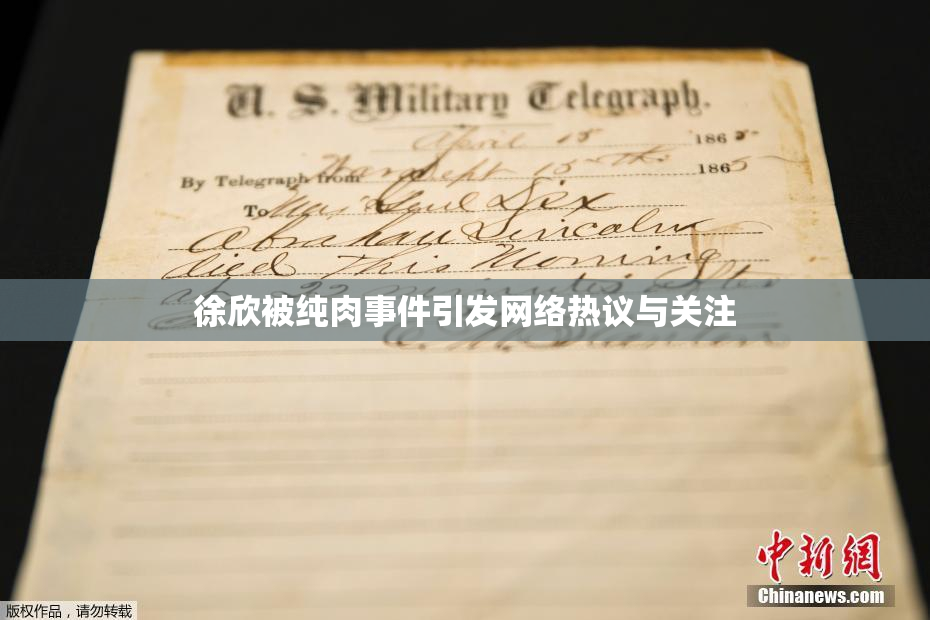 U. S. Military Telegraph.
April 15 1865
By Telegraph from War Dept 15th 1865
To Maj Genl Dix
Abraham Lincoln
died This Morning
at 22 minutes after
徐欣被纯肉事件引发网络热议与关注
E. M. Stanton
中新网
Chinanews.com
版权作品，请勿转载